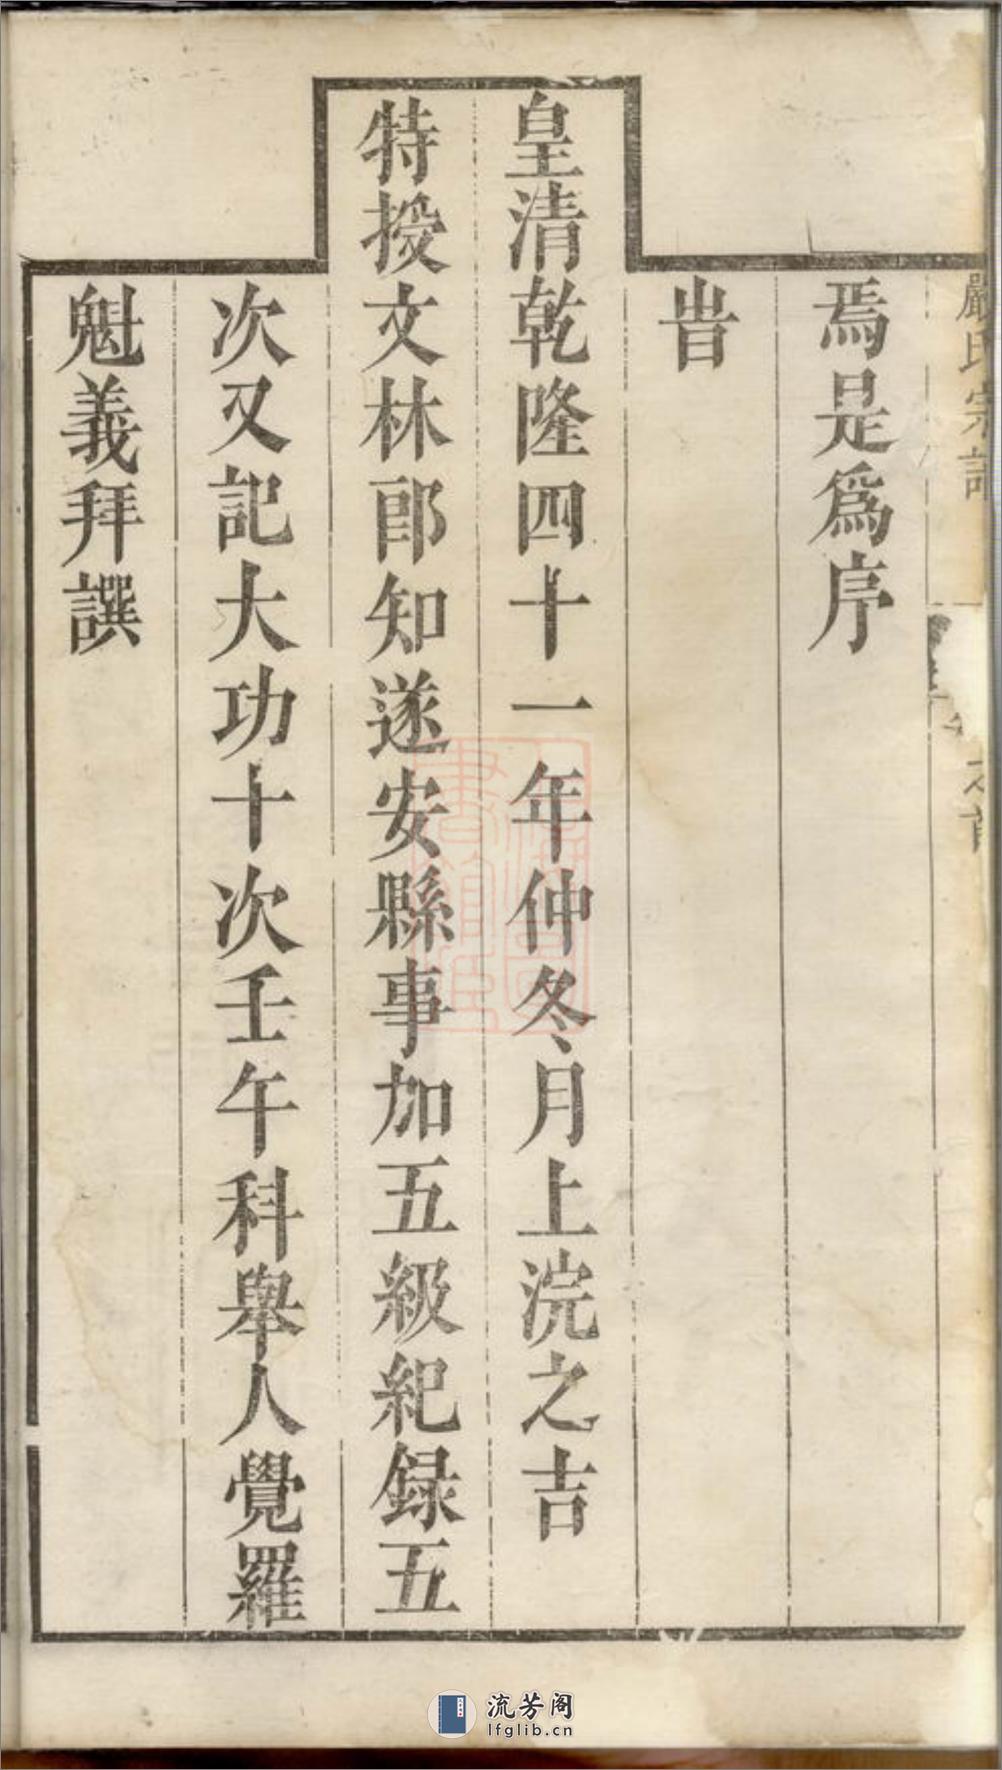 嚴氏宗譜
卷之首
焉是爲序
旹
皇清乾隆四十一年仲冬月上浣之吉
特授文林郎知遂安縣事加五級紀録五
次又記大功十次壬午科舉人覺羅
魁義拜譔
流芳阁
lfglib.cn